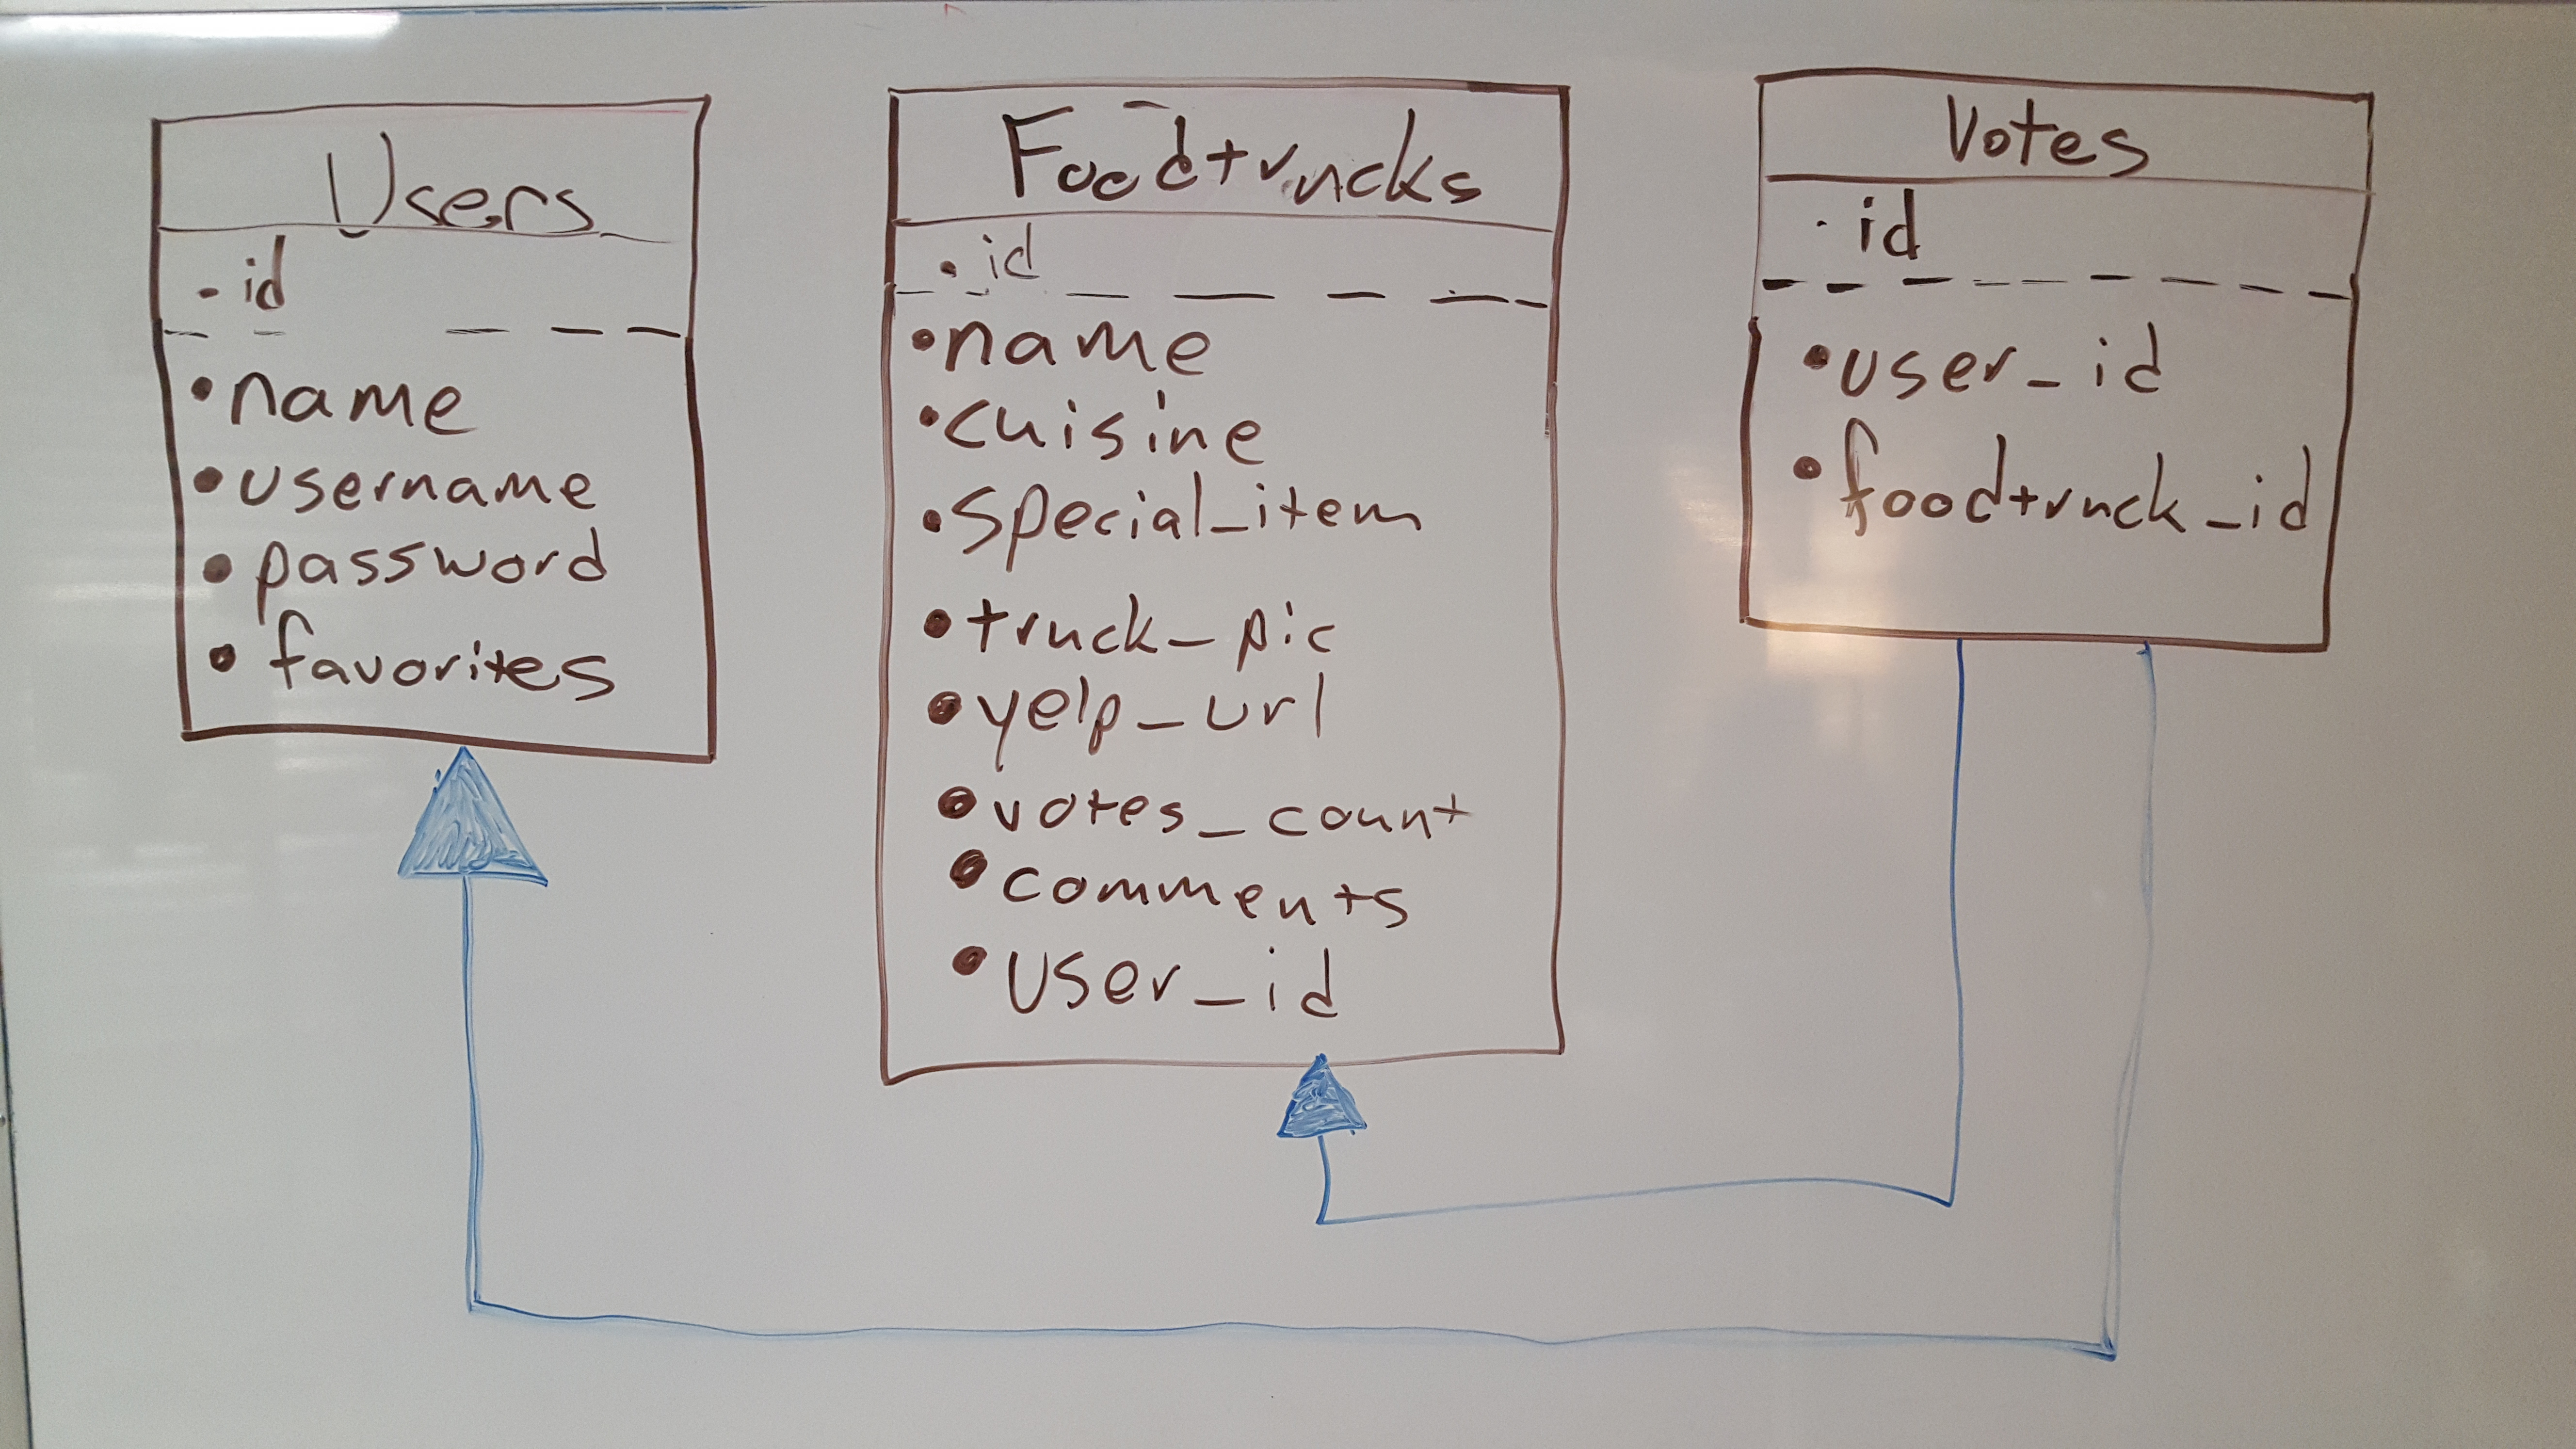 Users
• id
• name
• username
• password
• favorites
Foodtrucks
• id
• name
• cuisine
• special_item
• truck_pic
• yelp_url
• votes_count
• comments
• user_id
Votes
• id
• user_id
• foodtruck_id